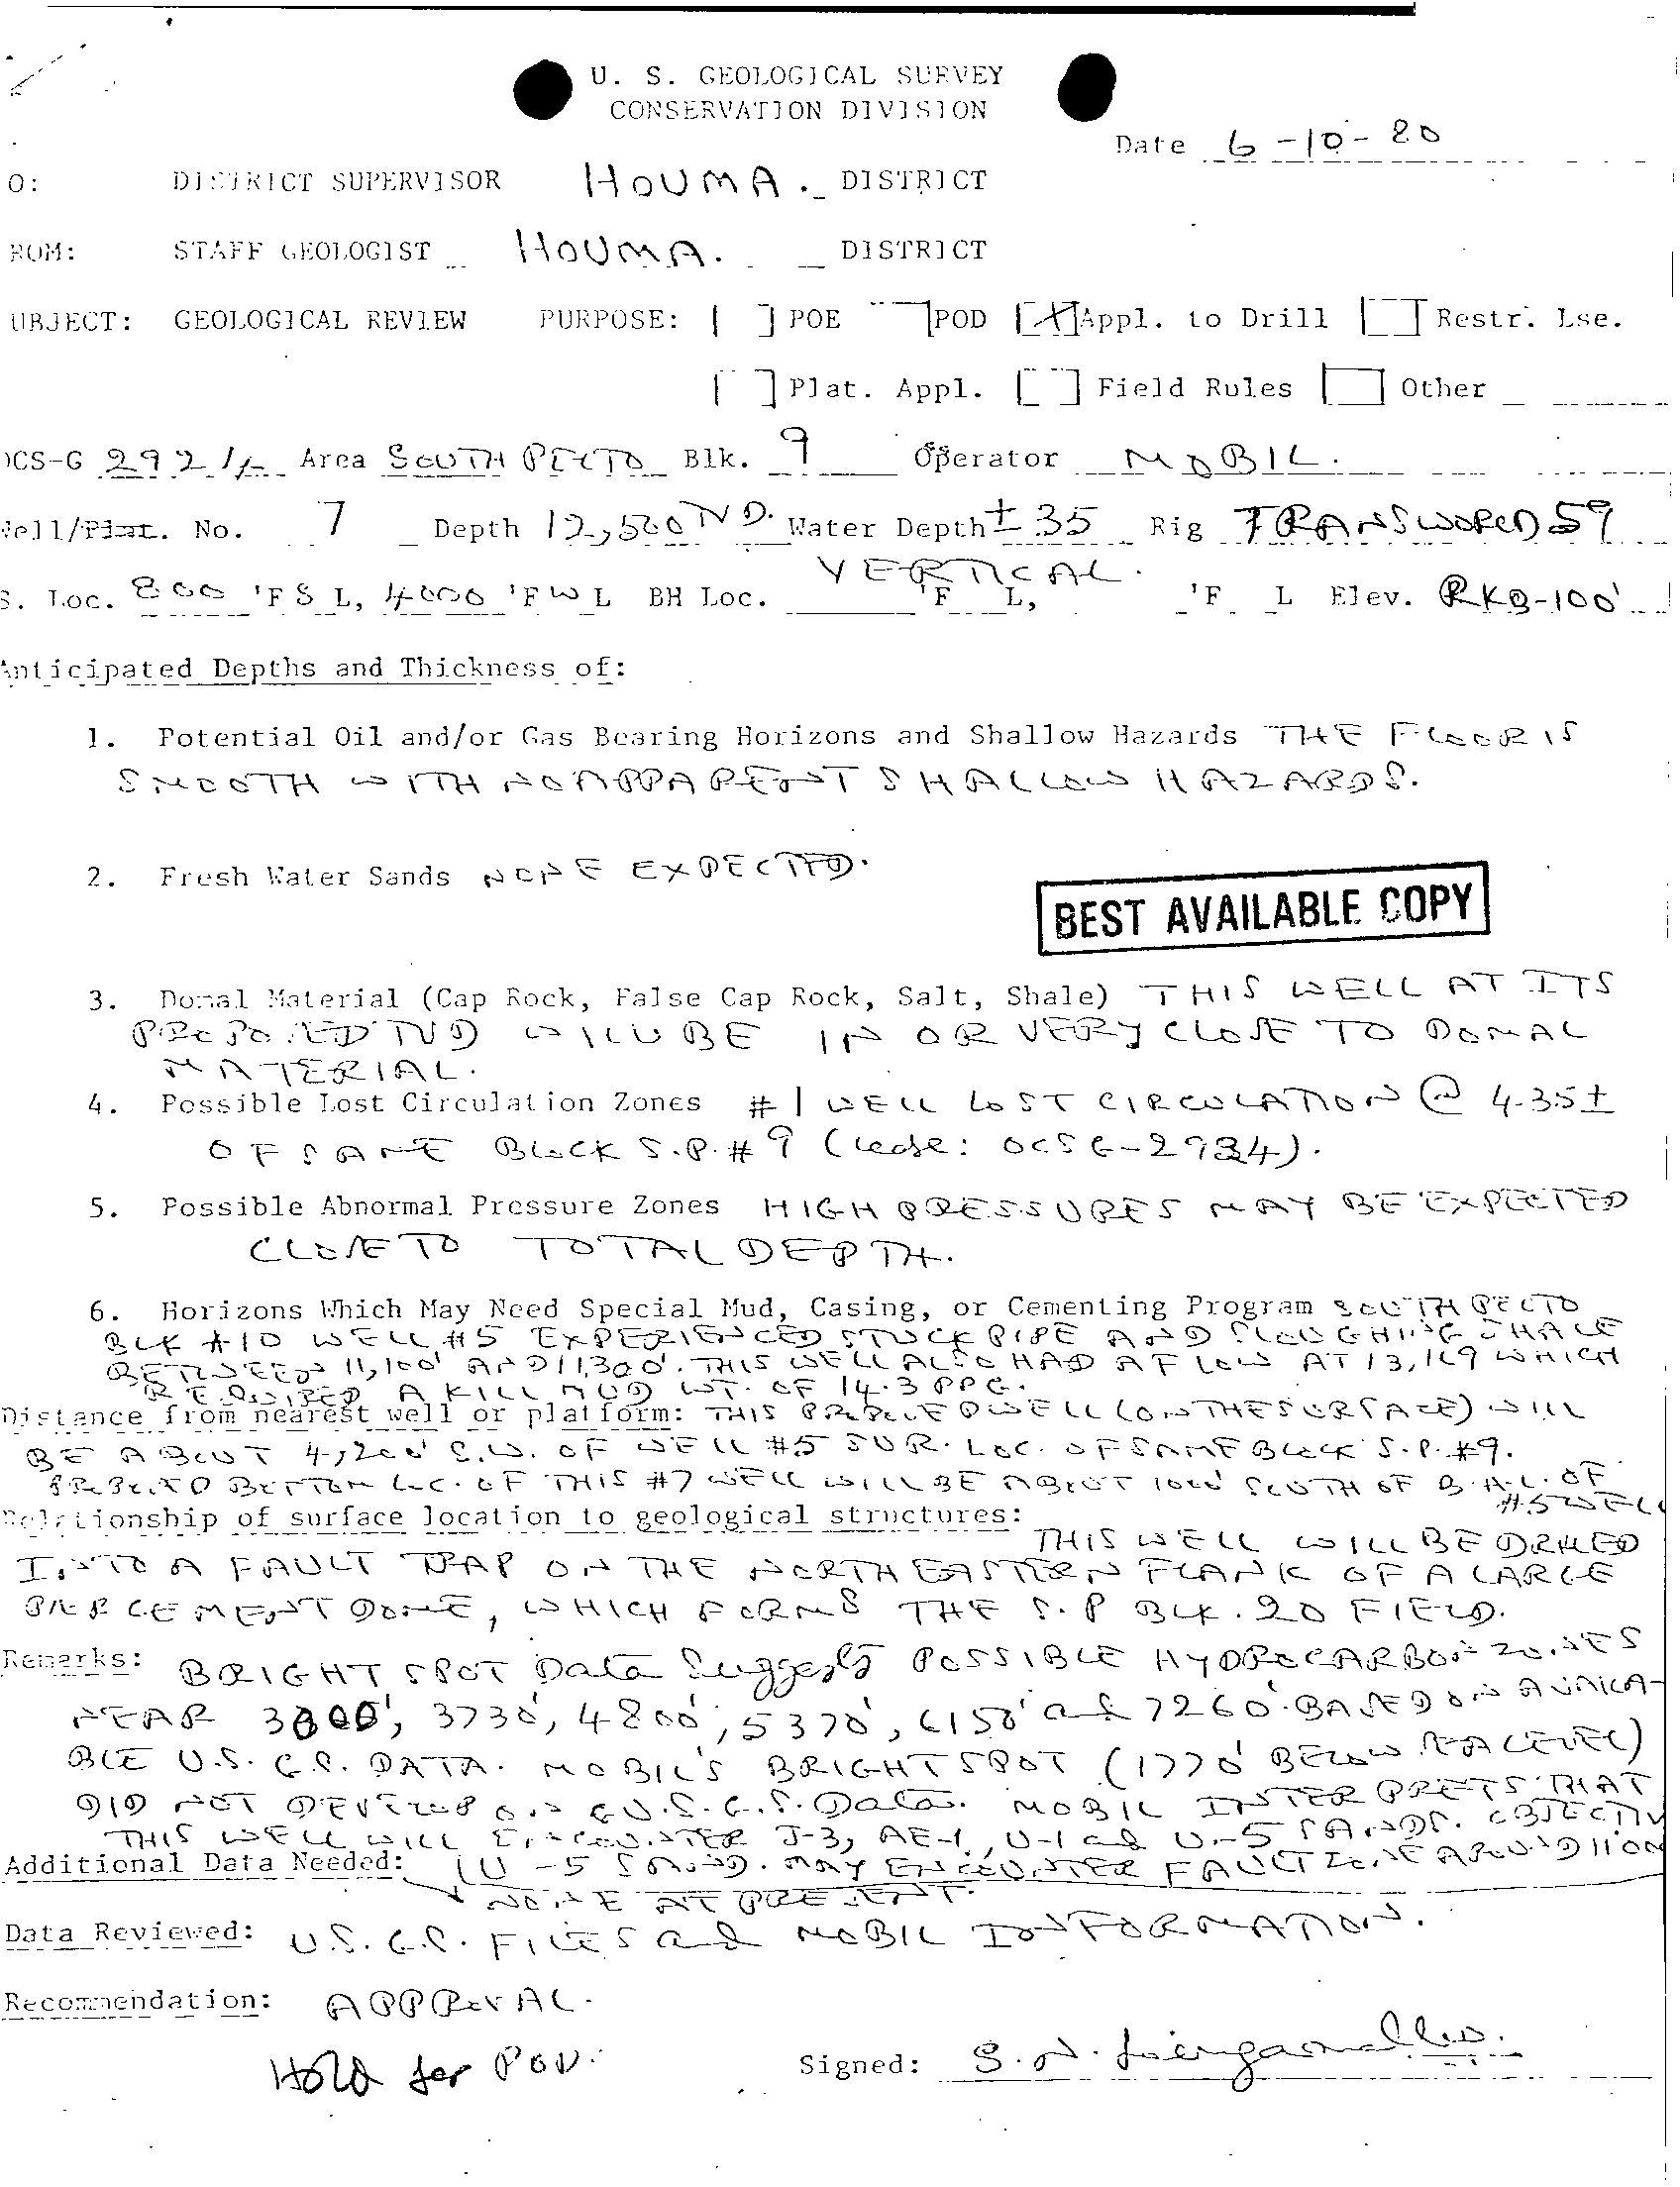 U. S. GEOLOGICAL SURVEY
CONSERVATION DIVISION
Date 6-10-80
O: DISTRICT SUPERVISOR HOUMA. DISTRICT
ROM: STAFF GEOLOGIST HOUMA. DISTRICT
UBJECT: GEOLOGICAL REVIEW PURPOSE: [ ] POE [ ] POD [X] Appl. to Drill [ ] Restr. Lse.
[ ] Plat. Appl. [ ] Field Rules [ ] Other
OCS-G 2924 Area SOUTH PELTO Blk. 9 Operator MOBIL.
Well/Plat. No. 7 Depth 12,500 TVD. Water Depth ± 35 Rig TRANSWORLD 59
S. Loc. 800 'F S L, 4000 'F W L BH Loc. VERTICAL. 'F L, 'F L Elev. RKB-100'
Anticipated Depths and Thickness of:
1. Potential Oil and/or Gas Bearing Horizons and Shallow Hazards THE FLOOR IS
SMOOTH WITH NO APPARENT SHALLOW HAZARDS.
2. Fresh Water Sands NONE EXPECTED.
BEST AVAILABLE COPY
3. Domal Material (Cap Rock, False Cap Rock, Salt, Shale) THIS WELL AT ITS
PROPOSED TVD WILL BE IN OR VERY CLOSE TO DOMAL
MATERIAL.
4. Possible Lost Circulation Zones #1 WELL LOST CIRCULATION @ 435±
OF SAME BLOCK S.P. #9 (lease: OCSG-2924).
5. Possible Abnormal Pressure Zones HIGH PRESSURES MAY BE EXPECTED
CLOSE TO TOTAL DEPTH.
6. Horizons Which May Need Special Mud, Casing, or Cementing Program SOUTH PELTO
BLK #10 WELL #5 EXPERIENCED STUCK PIPE AND SLOUGHING SHALE
BETWEEN 11,100' AND 11,300'. THIS WELL ALSO HAD A FLOW AT 13,169 WHICH
REQUIRED A KILL MUD WT. OF 14.3 PPG.
Distance from nearest well or platform: THIS PROPOSED WELL (ON THE SURFACE) WILL
BE ABOUT 4,200' S.W. OF WELL #5 SUR. LOC. OF SAME BLOCK S.P. #9.
PROPOSED BOTTOM LOC. OF THIS #7 WELL WILL BE ABOUT 1000' SOUTH OF B.H.L. OF
#5 WELL
Relationship of surface location to geological structures:
THIS WELL WILL BE DRILLED
INTO A FAULT TRAP ON THE NORTH EASTERN FLANK OF A LARGE
PIERCEMENT DOME, WHICH FORMS THE S.P BLK. 20 FIELD.
Remarks: BRIGHT SPOT Data Suggests POSSIBLE HYDROCARBON ZONES
NEAR 3000', 3730', 4800', 5370', 6150' and 7260'. BASED ON AVAILA-
BLE U.S.G.S. DATA. MOBIL'S BRIGHT SPOT (1770' BELOW SEA LEVEL)
DID NOT DEVELOP ON U.S.G.S. Data. MOBIL INTERPRETS THAT
THIS WELL WILL ENCOUNTER J-3, AE-1, U-1 and U-5 SANDS. OBJECTIV
Additional Data Needed: (U-5 SAND. MAY ENCOUNTER FAULT ZONE AROUND 1100
NONE AT PRESENT.
Data Reviewed: U.S.G.S. FILES and MOBIL INFORMATION.
Recommendation: APPROVAL.
Hold for POD.
Signed: S. N.